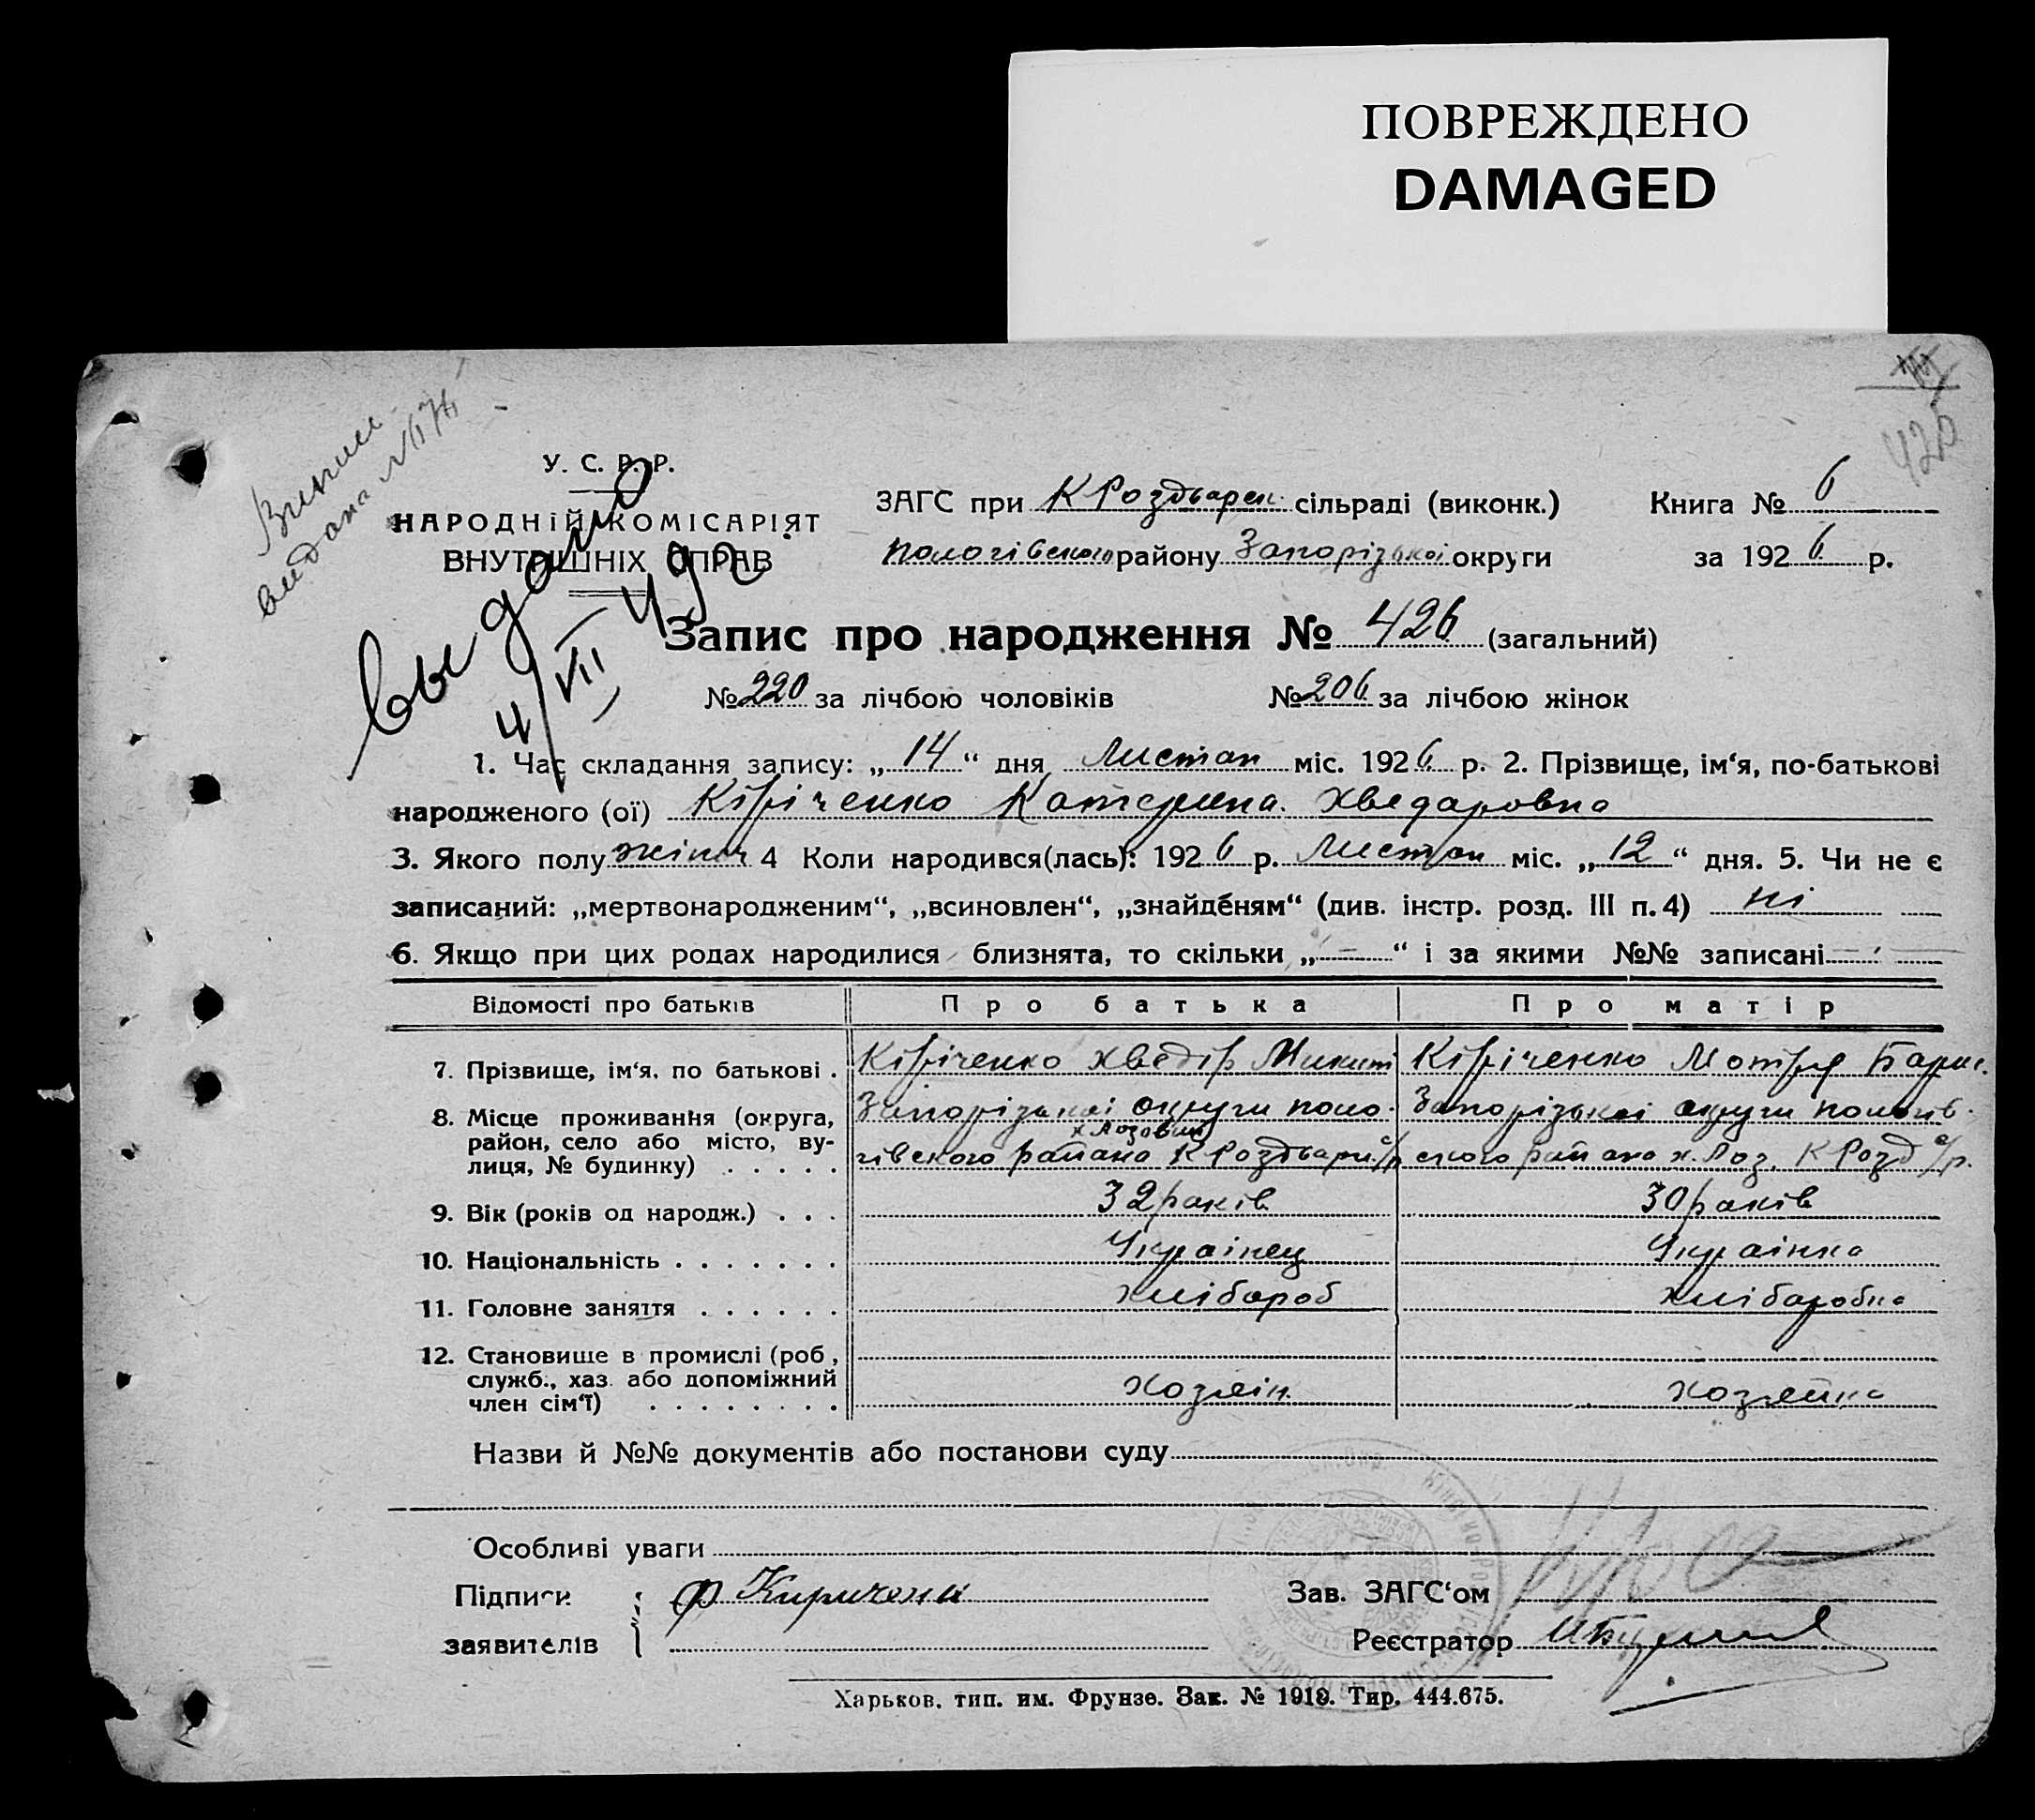 ПОВРЕЖДЕНО
DAMAGED
426
Випис
видана №
Выдано
4/VII 49г.
У. С. Р. Р.
НАРОДНІЙ КОМІСАРІЯТ
ВНУТРІШНІХ СПРАВ
ЗАГС при К Роздварск сільраді (виконк.) Книга № 6
Пологівського району Запорізької округи за 1926 р.
Запис про народження № 426 (загальний)
№ 220 за лічбою чоловіків № 206 за лічбою жінок
1. Час складання запису: „14“ дня Листоп міс. 1926 р. 2. Прізвище, ім‘я, по-батькові
народженого (ої) Кіріченко Катерина Хведаровна
3. Якого полу жіноч 4 Коли народився(лась): 1926 р. Листоп міс. „12“ дня. 5. Чи не є
записаний: „мертвонародженим“, „всиновлен“, „знайденям“ (див. інстр. розд. III п. 4) ні
6. Якщо при цих родах народилися близнята, то скільки „—“ і за якими №№ записані
Відомості про батьків Про батька Про матір
7. Прізвище, ім‘я, по батькові . Кіріченко Хведір Микит Кіріченко Мотря Барис.
8. Місце проживання (округа, район, село або місто, вулиця, № будинку) Запорізької округи Поло- Запорізької округи Пологів-
х Лозовий
гівского района К Роздвари с/р ского района х. Лоз. К Розд с/р.
9. Вік (років од народж.) . . . 32 раків 30 раків
10. Національність . . . . . . . Украінец Украінка
11. Головне заняття . . . . . . хлібароб хлібаробка
12. Становище в промислі (роб,
служб., хаз. або допоміжний
член сім‘ї) . . . . . . . . хозяін. хозяйка
Назви й №№ документів або постанови суду
Особливі уваги
Підписи Ф Кириченк Зав. ЗАГС‘ом
заявителів Реєстратор
Харьков. тип. им. Фрунзе. Зак. № 1919. Тир. 444.675.